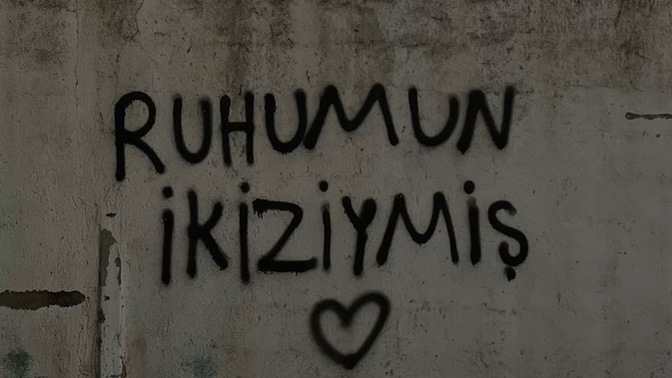 RUHUMUN
İKİZİYMİŞ